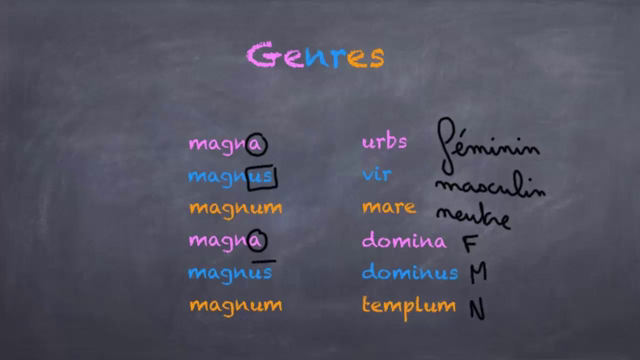 Genres
magna urbs féminin
magnus vir masculin
magnum mare neutre
magna domina F
magnus dominus M
magnum templum N